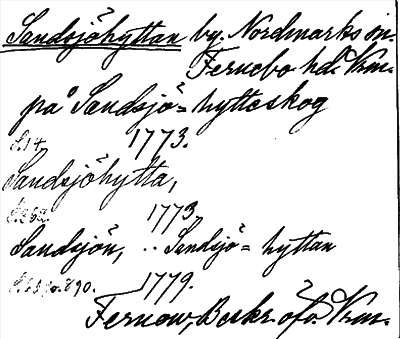 Sandsjöhyttan by. Nordmarks sn.
Fernebo hd. Vrm.
på Sandsjö=hytteskog
S. 14. 1773.
Sandsjöhytta,
S. 262. 1773,
Sandsjön, .. Sandsjö=hyttan
1779.
Fernow, Beskr. öfv. Vrm.